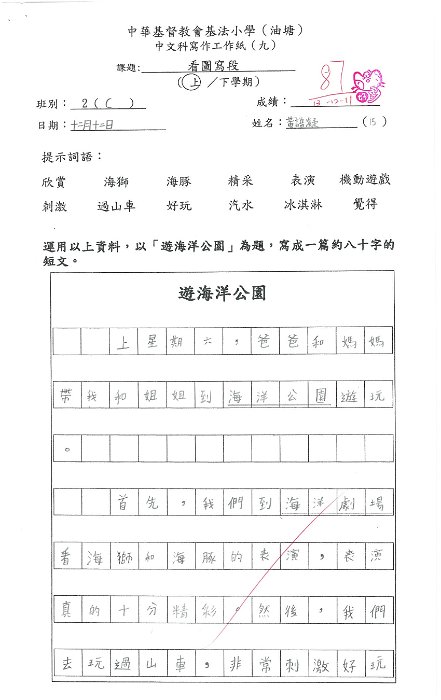 中華基督教會基法小學（油塘）
中文科寫作工作紙（九）
課題：看圖寫段
（上／下學期）
班別：2（ ） 成績：87
13-12-11
日期：十二月十二日 姓名：（15）
提示詞語：
欣賞 海獅 海豚 精采 表演 機動遊戲
刺激 過山車 好玩 汽水 冰淇淋 覺得
運用以上資料，以「遊海洋公園」為題，寫成一篇約八十字的
短文。
遊海洋公園
上星期六，爸爸和媽媽
帶我和姐姐到海洋公園遊玩
。
首先，我們到海洋劇場
看海獅和海豚的表演，表演
真的十分精彩。然後，我們
去玩過山車，非常刺激好玩